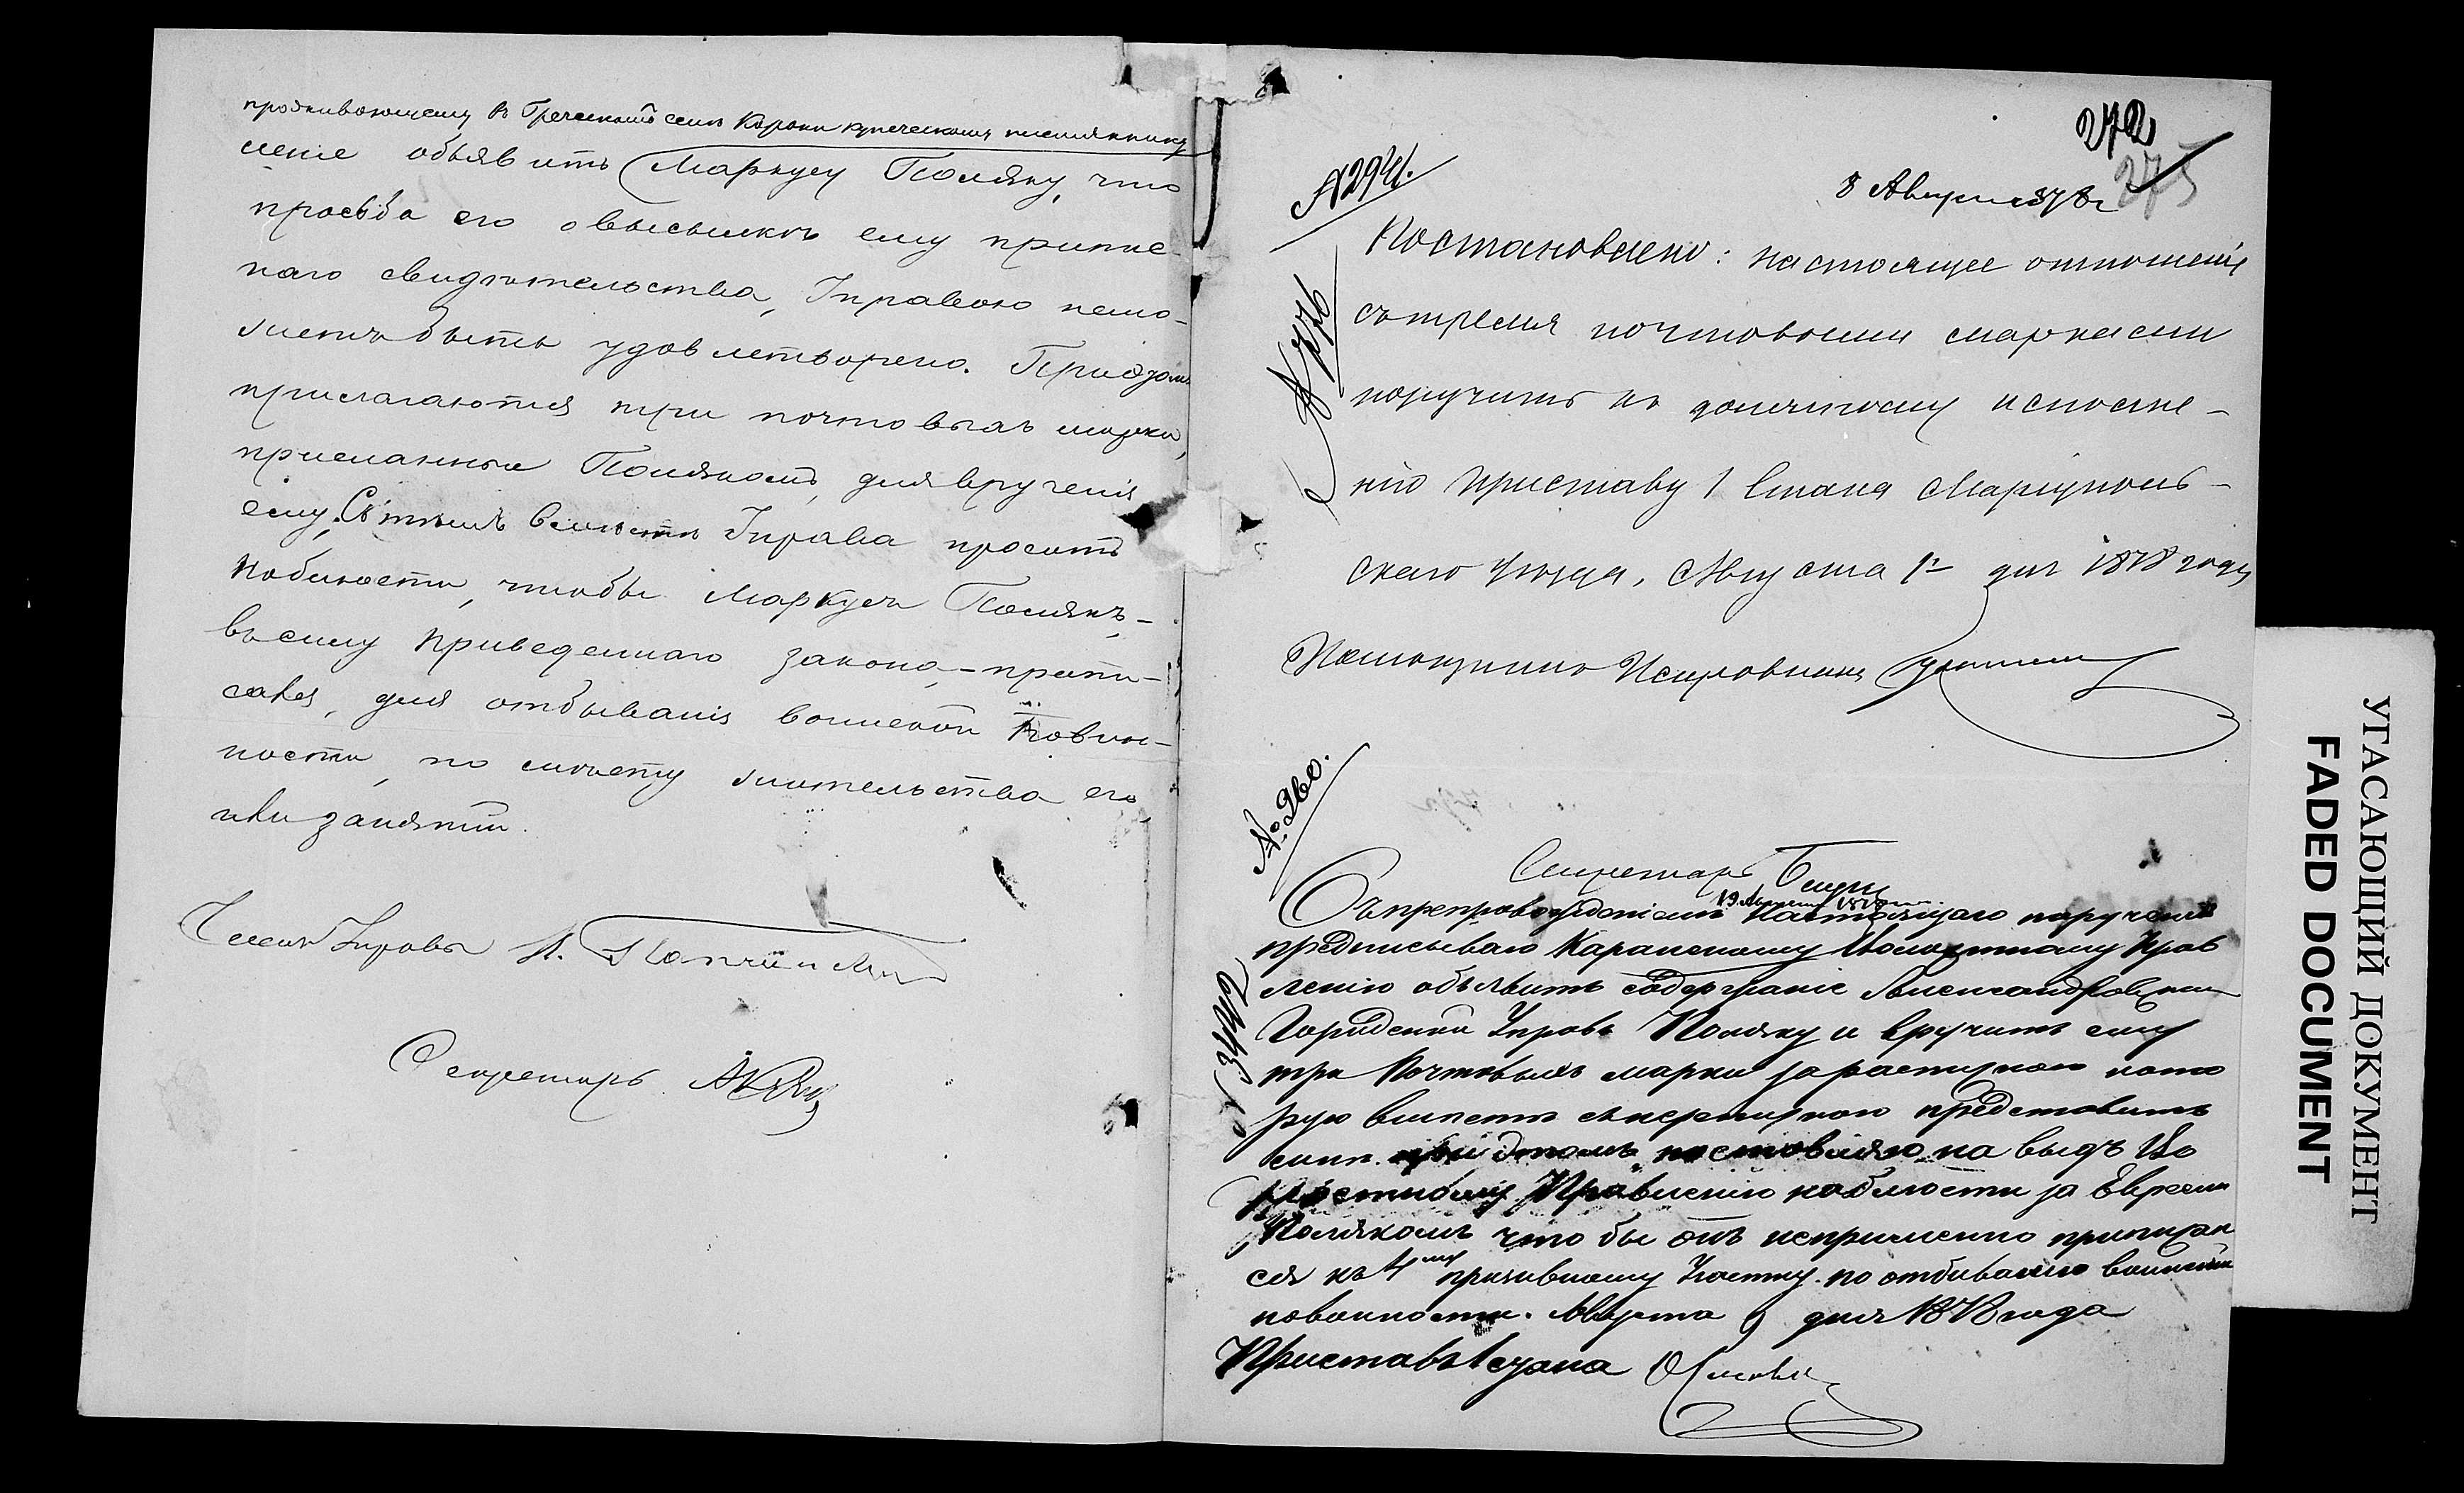 проживающему въ Греческомъ селѣ Карани купеческому племяннику
леніе объявить Маркусу Поляку, что
просьба его о высылкѣ ему припис-
наго свидѣтельства, Управою немо-
жетъ быть удовлетворено. При этомъ
прилагаются три почтовыхъ марки,
присланные Полякомъ, для врученія
ему. Съ тѣмъ вмѣстѣ Управа проситъ
наблюсти, чтобы Маркусъ Полякъ,-
въ силу приведеннаго закона,- припи-
сался, для отбыванія воинской повин-
ности, по мѣсту жительства его
или занятій.
Членъ Управы
Секретарь
272
275
№ 2941.
8 Августа 1878 г
Постановлено: настоящее отношеніе
съ тремя почтовыми марками
поручить къ должному исполне-
нію Приставу 1 Стана Маріуполь-
скаго Уѣзда, Августа 1 дня 1878 года
Помощникъ Исправника
№ 260.
Секретарь
Съ препровожденіемъ настоящаго порученія
предписываю Каранскому Волостному Прав
ленію объявить содержаніе Александровской
Городской Управы Поляку и вручить ему
три Почтовыхъ марки за роспискою кото
рую вмѣстѣ съ перепискою представить
мнѣ. при этомъ поставляю на видъ Во
лостному Правленію наблюсти за Евреемъ
Полякомъ что бы онъ непремѣнно приписал
ся къ 4му призывному Участку по отбыванію воинской
повинности. Августа 9 дня 1878 года
Приставъ 1 стана
УГАСАЮЩИЙ ДОКУМЕНТ
FADED DOCUMENT